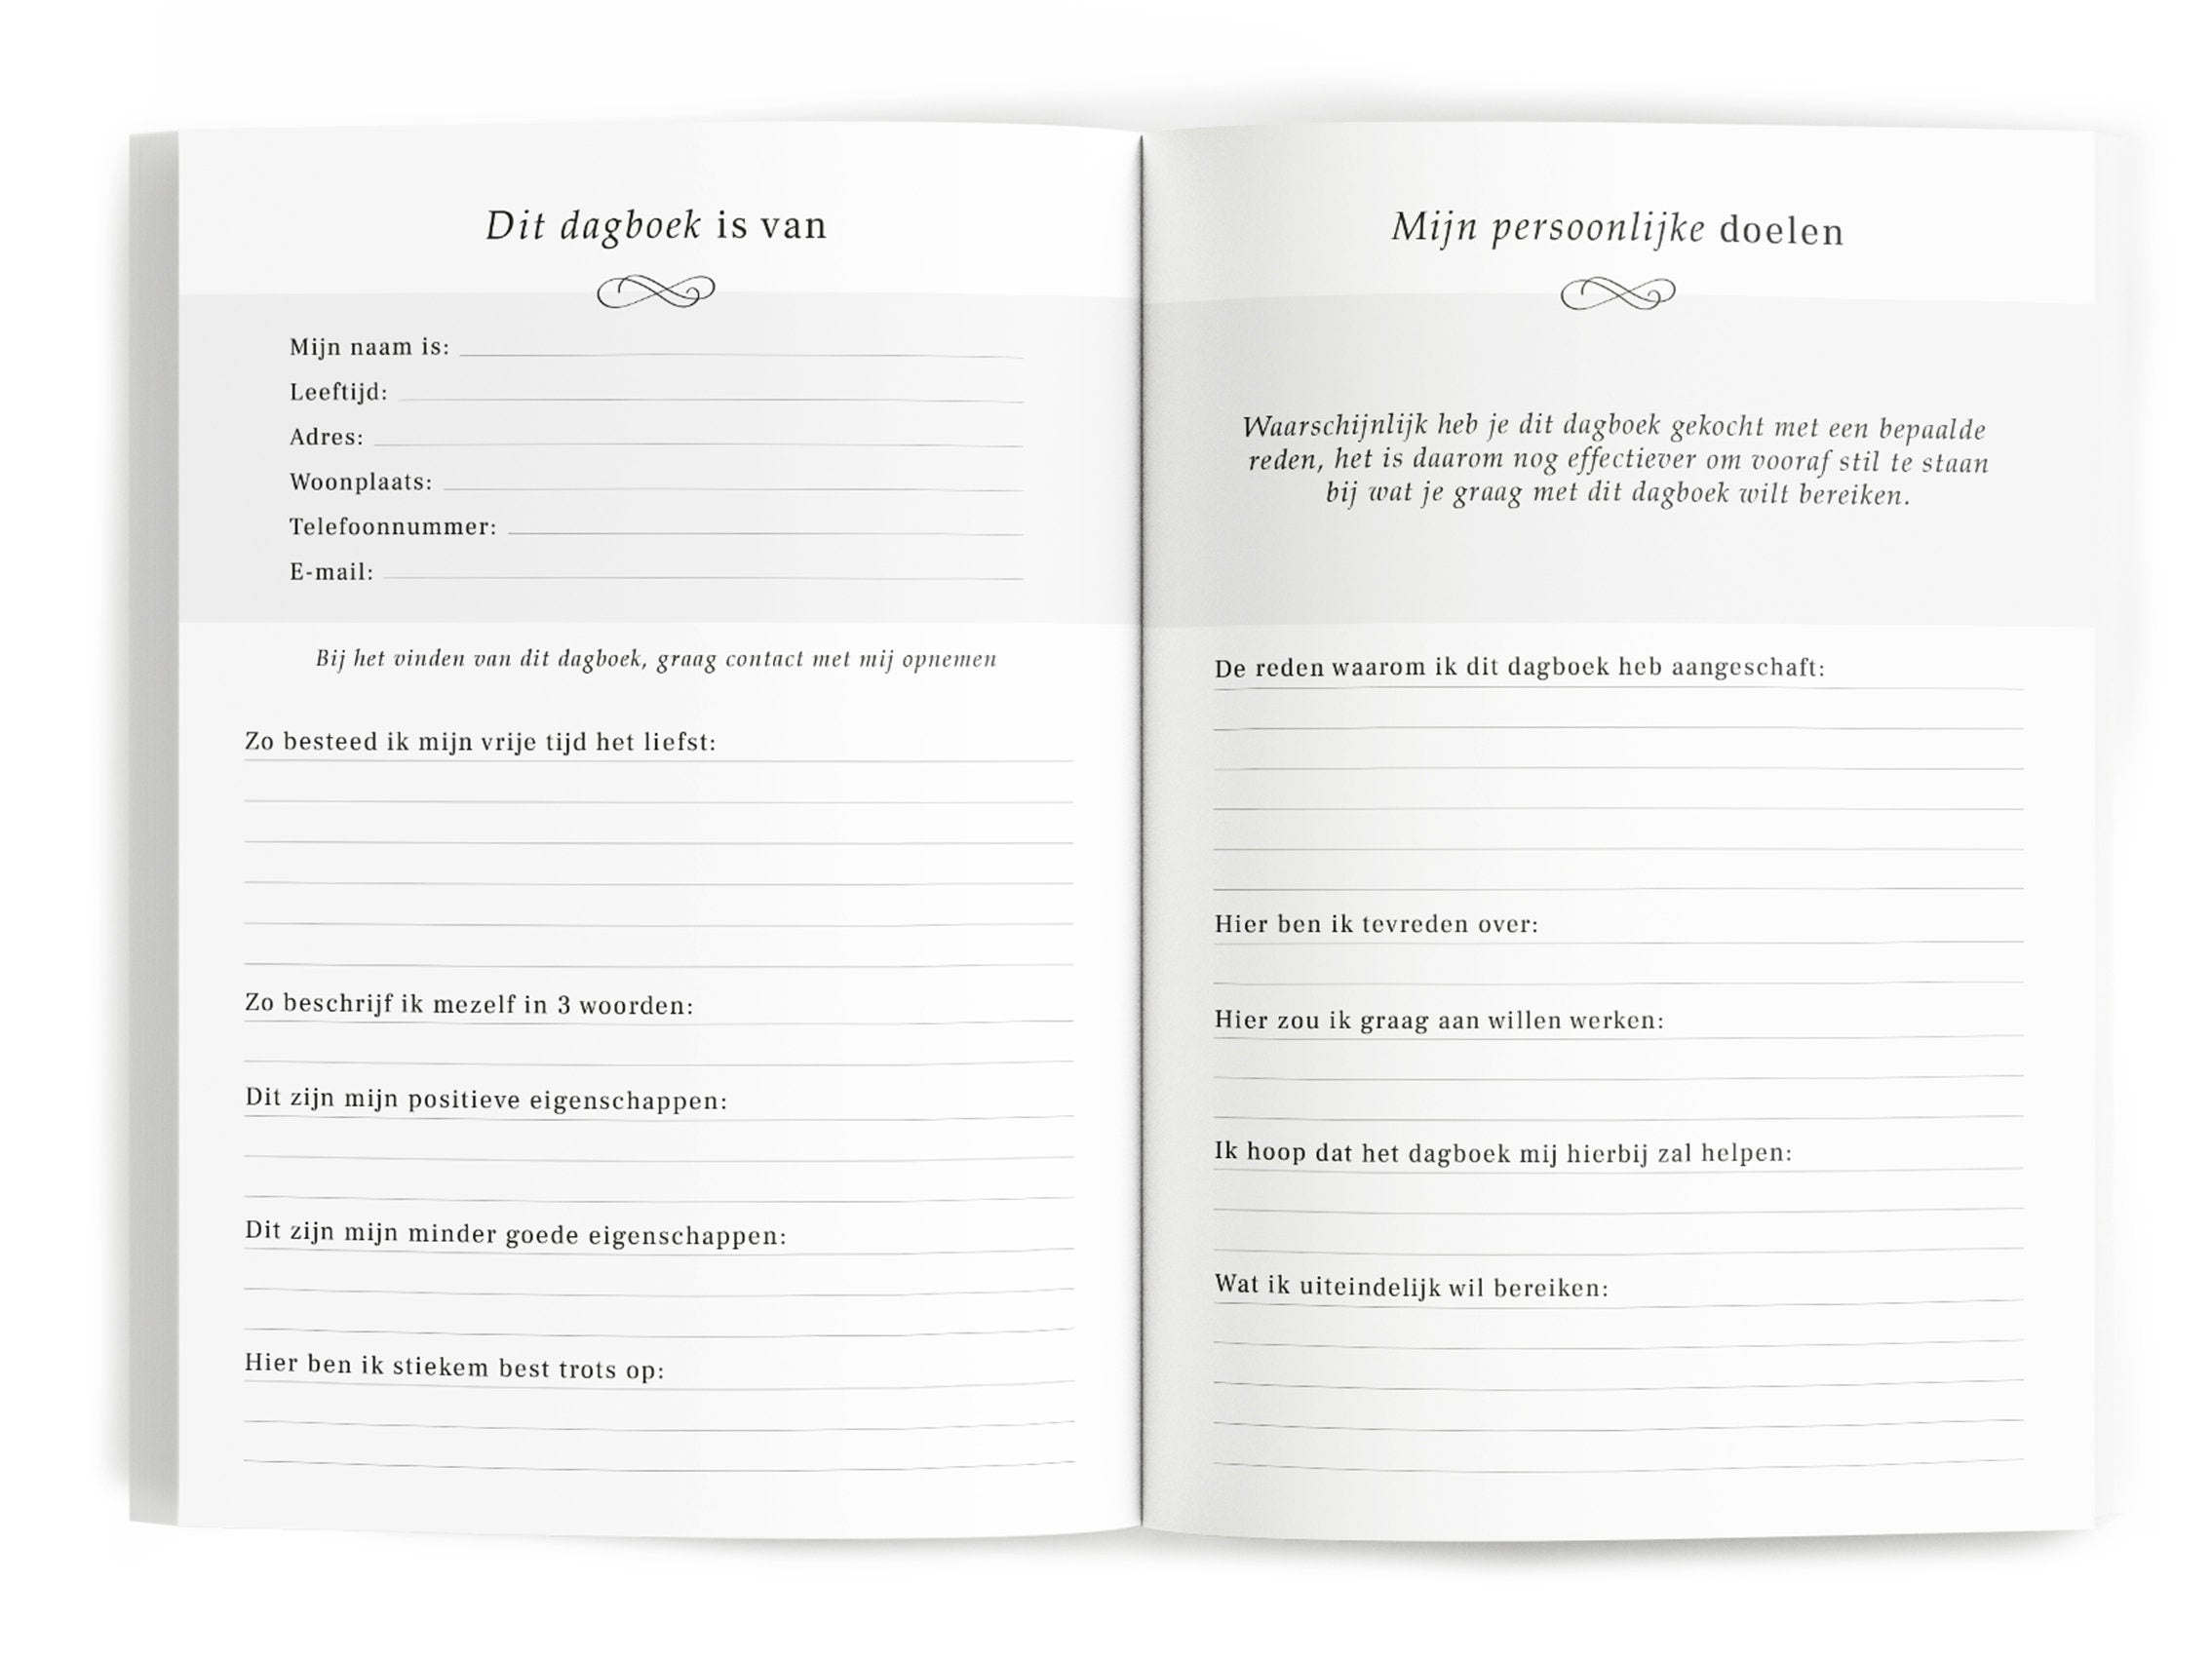 Dit dagboek is van
Mijn naam is:
Leeftijd:
Adres:
Woonplaats:
Telefoonnummer:
E-mail:
Bij het vinden van dit dagboek, graag contact met mij opnemen
Zo besteed ik mijn vrije tijd het liefst:
Zo beschrijf ik mezelf in 3 woorden:
Dit zijn mijn positieve eigenschappen:
Dit zijn mijn minder goede eigenschappen:
Hier ben ik stiekem best trots op:
Mijn persoonlijke doelen
Waarschijnlijk heb je dit dagboek gekocht met een bepaalde
reden, het is daarom nog effectiever om vooraf stil te staan
bij wat je graag met dit dagboek wilt bereiken.
De reden waarom ik dit dagboek heb aangeschaft:
Hier ben ik tevreden over:
Hier zou ik graag aan willen werken:
Ik hoop dat het dagboek mij hierbij zal helpen:
Wat ik uiteindelijk wil bereiken: